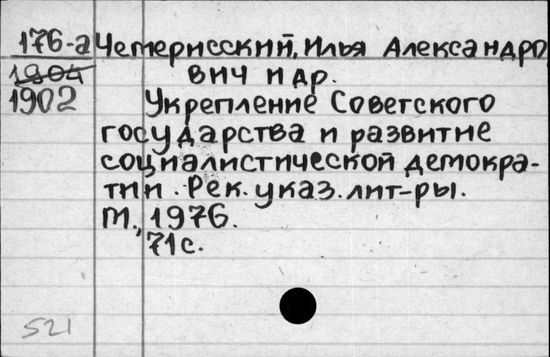 176-а Четерисский, Илья Александро
1904 вич и др.
1902 Укрепление Советского
государства и развитие
социалистической демокра-
тии. Рек. указ. лит-ры.
М., 1976.
71с.
521